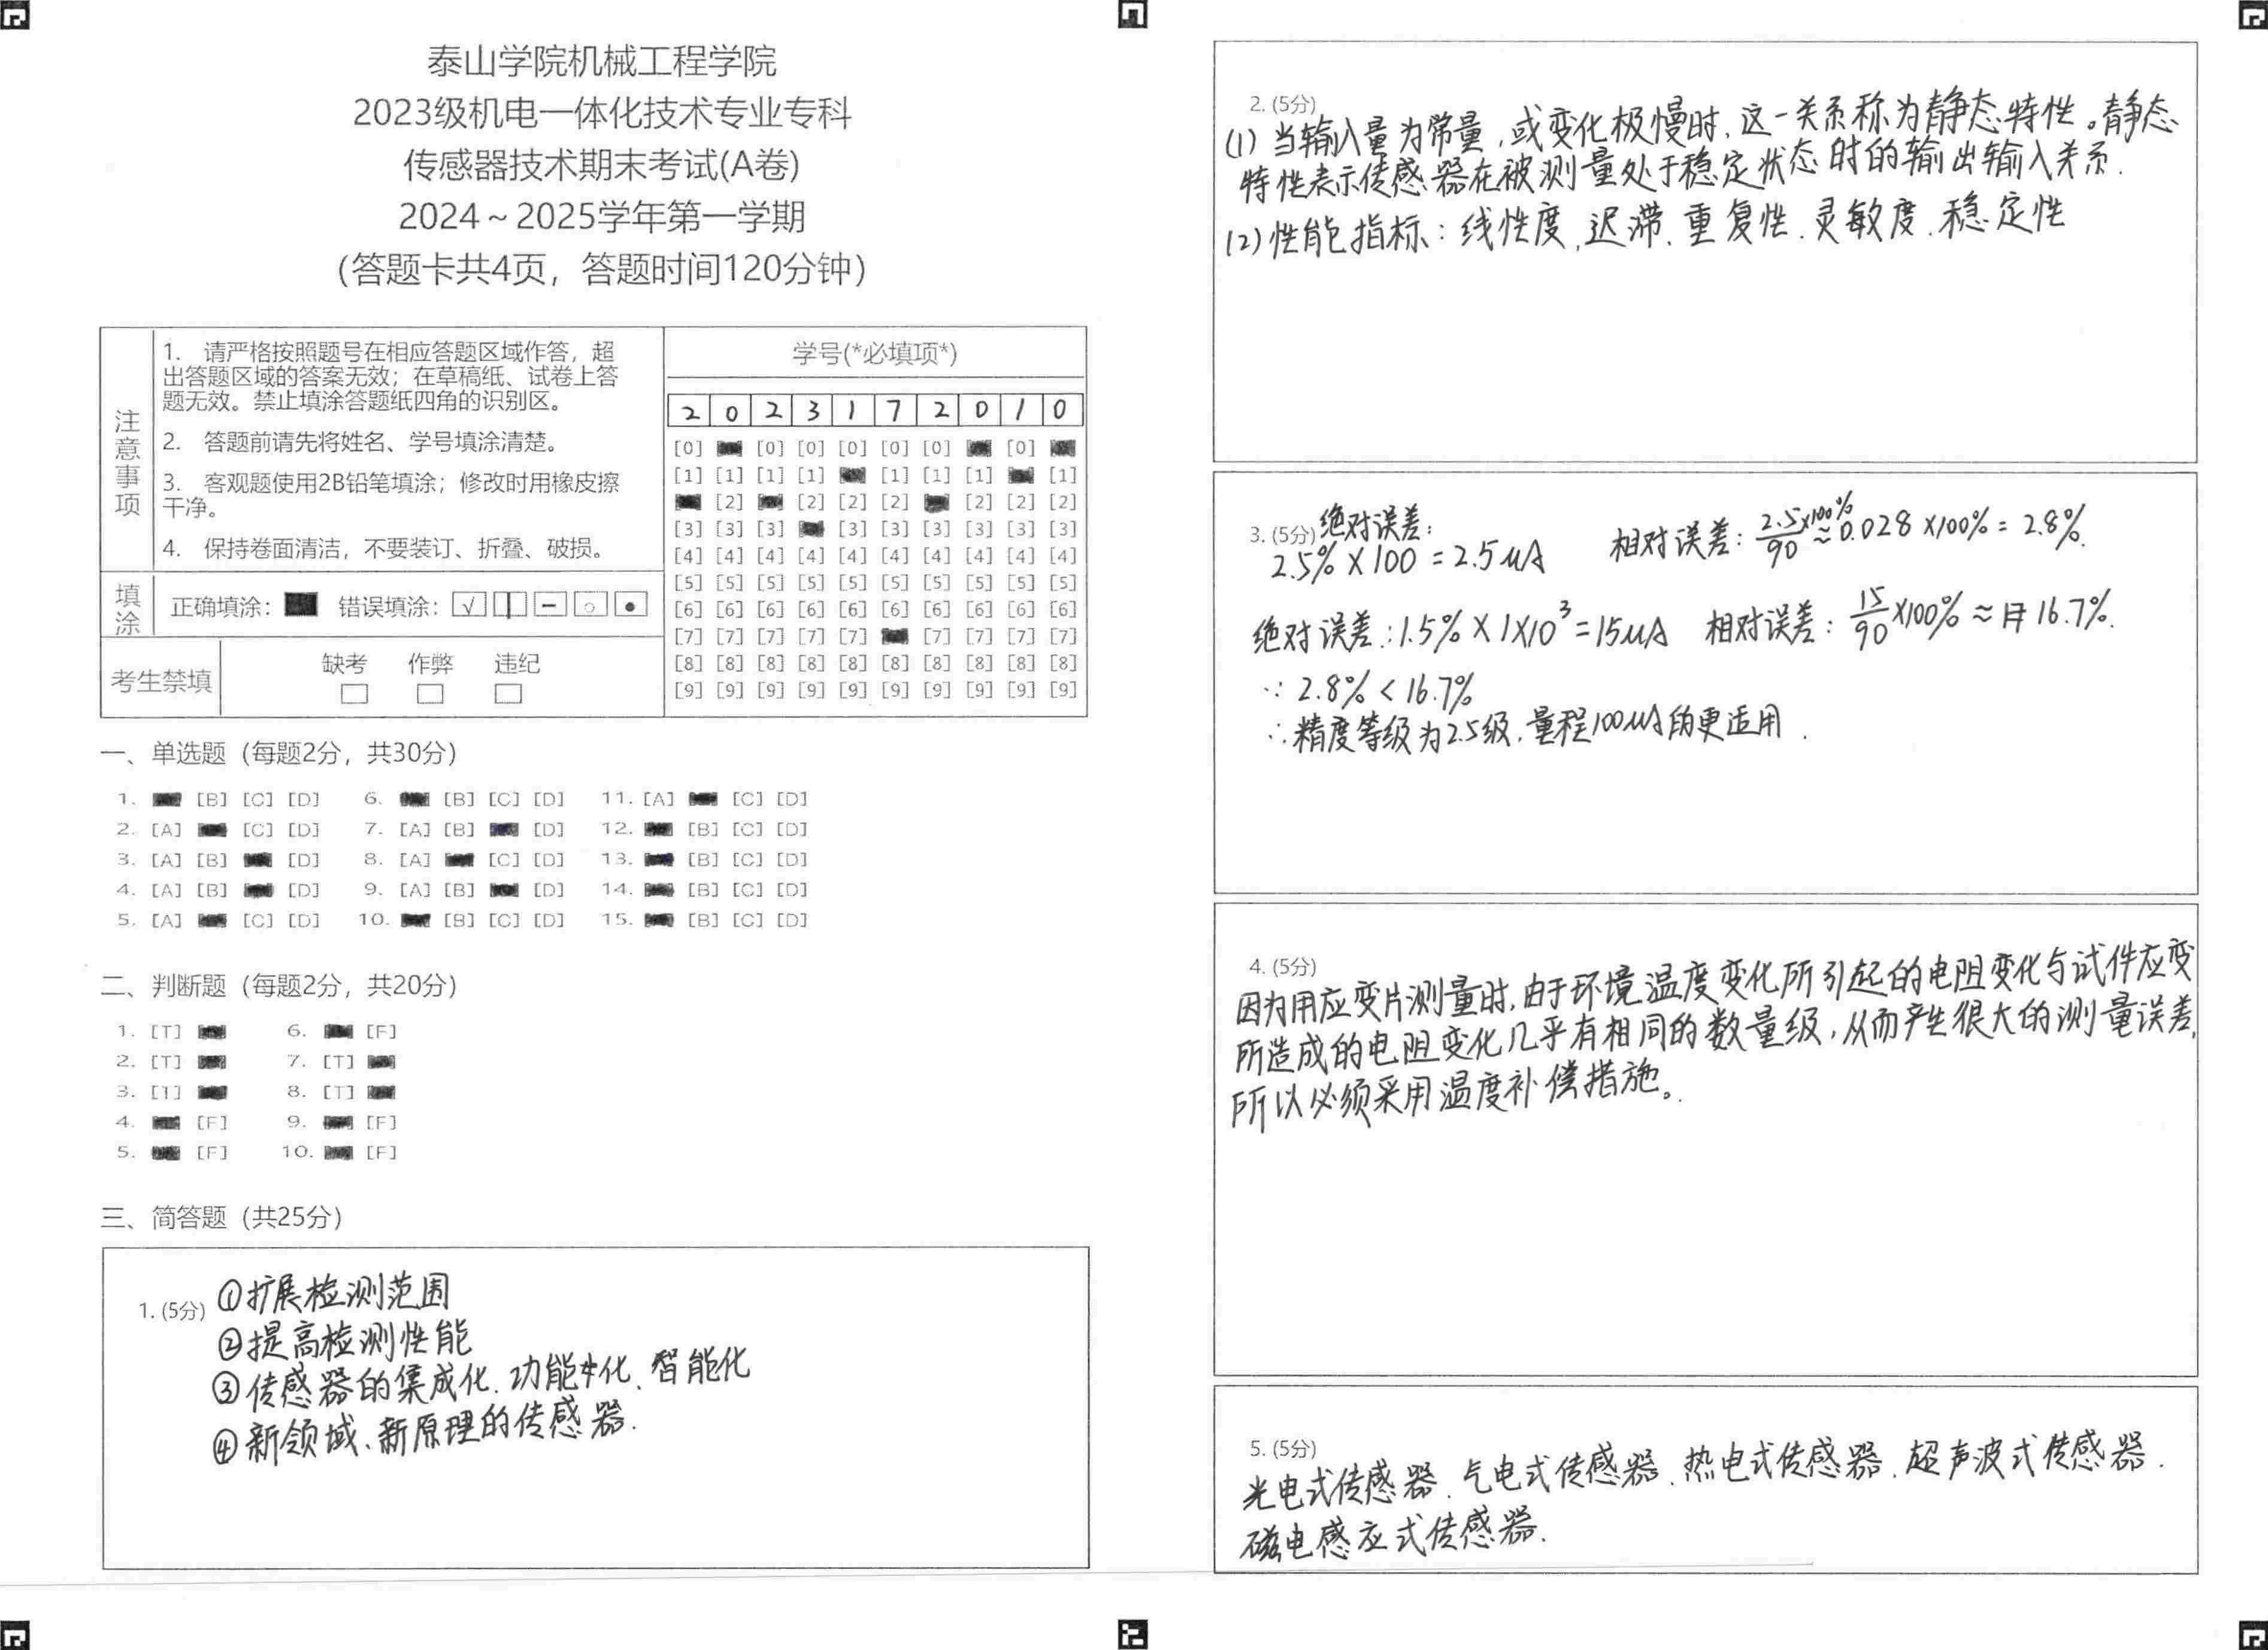 泰山学院机械工程学院
2023级机电一体化技术专业专科
传感器技术期末考试(A卷)
2024～2025学年第一学期
（答题卡共4页，答题时间120分钟）
注意事项
1. 请严格按照题号在相应答题区域作答，超
出答题区域的答案无效；在草稿纸、试卷上答
题无效。禁止填涂答题纸四角的识别区。
2. 答题前请先将姓名、学号填涂清楚。
3. 客观题使用2B铅笔填涂；修改时用橡皮擦
干净。
4. 保持卷面清洁，不要装订、折叠、破损。
填涂
正确填涂： 错误填涂：
考生禁填
缺考 作弊 违纪
学号(*必填项*)
2 0 2 3 1 7 2 0 1 0
[0] [0] [0] [0] [0] [0] [0]
[1] [1] [1] [1] [1] [1] [1] [1]
[2] [2] [2] [2] [2] [2] [2]
[3] [3] [3] [3] [3] [3] [3] [3] [3]
[4] [4] [4] [4] [4] [4] [4] [4] [4] [4]
[5] [5] [5] [5] [5] [5] [5] [5] [5] [5]
[6] [6] [6] [6] [6] [6] [6] [6] [6] [6]
[7] [7] [7] [7] [7] [7] [7] [7] [7]
[8] [8] [8] [8] [8] [8] [8] [8] [8] [8]
[9] [9] [9] [9] [9] [9] [9] [9] [9] [9]
一、单选题（每题2分，共30分）
1. [B] [C] [D] 6. [B] [C] [D] 11. [A] [C] [D]
2. [A] [C] [D] 7. [A] [B] [D] 12. [B] [C] [D]
3. [A] [B] [D] 8. [A] [C] [D] 13. [B] [C] [D]
4. [A] [B] [D] 9. [A] [B] [D] 14. [B] [C] [D]
5. [A] [C] [D] 10. [B] [C] [D] 15. [B] [C] [D]
二、判断题（每题2分，共20分）
1. [T] 6. [F]
2. [T] 7. [T]
3. [T] 8. [T]
4. [F] 9. [F]
5. [F] 10. [F]
三、简答题（共25分）
1. (5分) ①扩展检测范围
②提高检测性能
③传感器的集成化、功能化、智能化
④新领域、新原理的传感器.
2. (5分)
(1) 当输入量为常量,或变化极慢时,这一关系称为静态特性。静态
特性表示传感器在被测量处于稳定状态时的输出输入关系.
(2)性能指标：线性度、迟滞、重复性、灵敏度、稳定性
3. (5分) 绝对误差：
2.5%×100=2.5μA 相对误差：2.5×100%/90≈0.028×100%=2.8%.
绝对误差：1.5%×1×10³=15μA 相对误差：15/90×100%≈16.7%.
∵ 2.8%<16.7%
∴精度等级为2.5级,量程100μA的更适用.
4. (5分)
因为用应变片测量时,由于环境温度变化所引起的电阻变化与试件应变
所造成的电阻变化几乎有相同的数量级,从而产生很大的测量误差,
所以必须采用温度补偿措施。
5. (5分)
光电式传感器、气电式传感器、热电式传感器、超声波式传感器.
磁电感应式传感器.